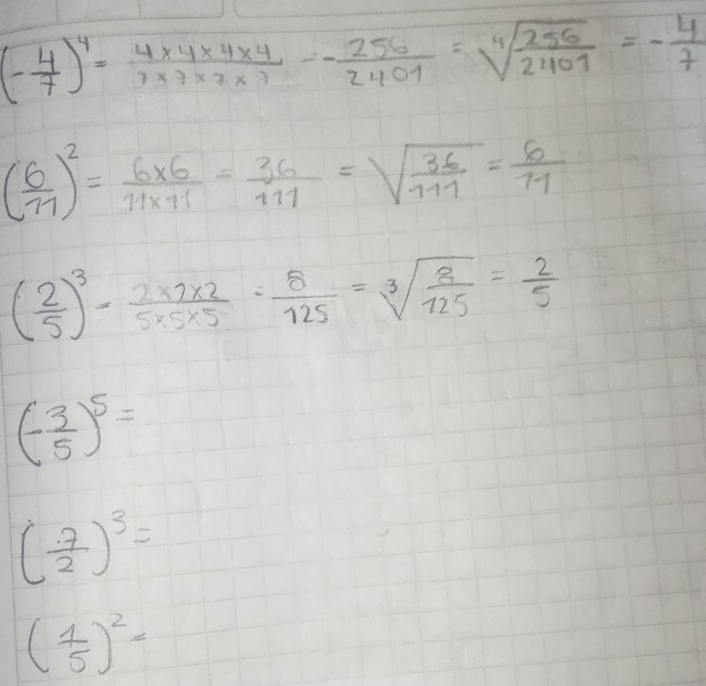 (-4/7)^4 = 4x4x4x4/7x7x7x7 = -256/2401 = ⁴√(256/2401) = -4/7
(6/11)^2 = 6x6/11x11 = 36/111 = √(36/111) = 6/11
(2/5)^3 = 2x2x2/5x5x5 = 8/125 = ³√(8/125) = 2/5
(-3/5)^5 =
(7/2)^3 =
(1/5)^2 =